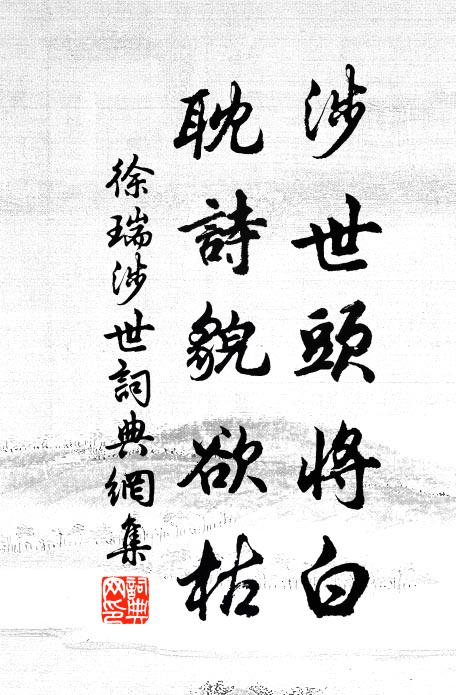 涉世頭將白
耽詩貌欲枯
徐瑞涉世詞典網集
詞典網印